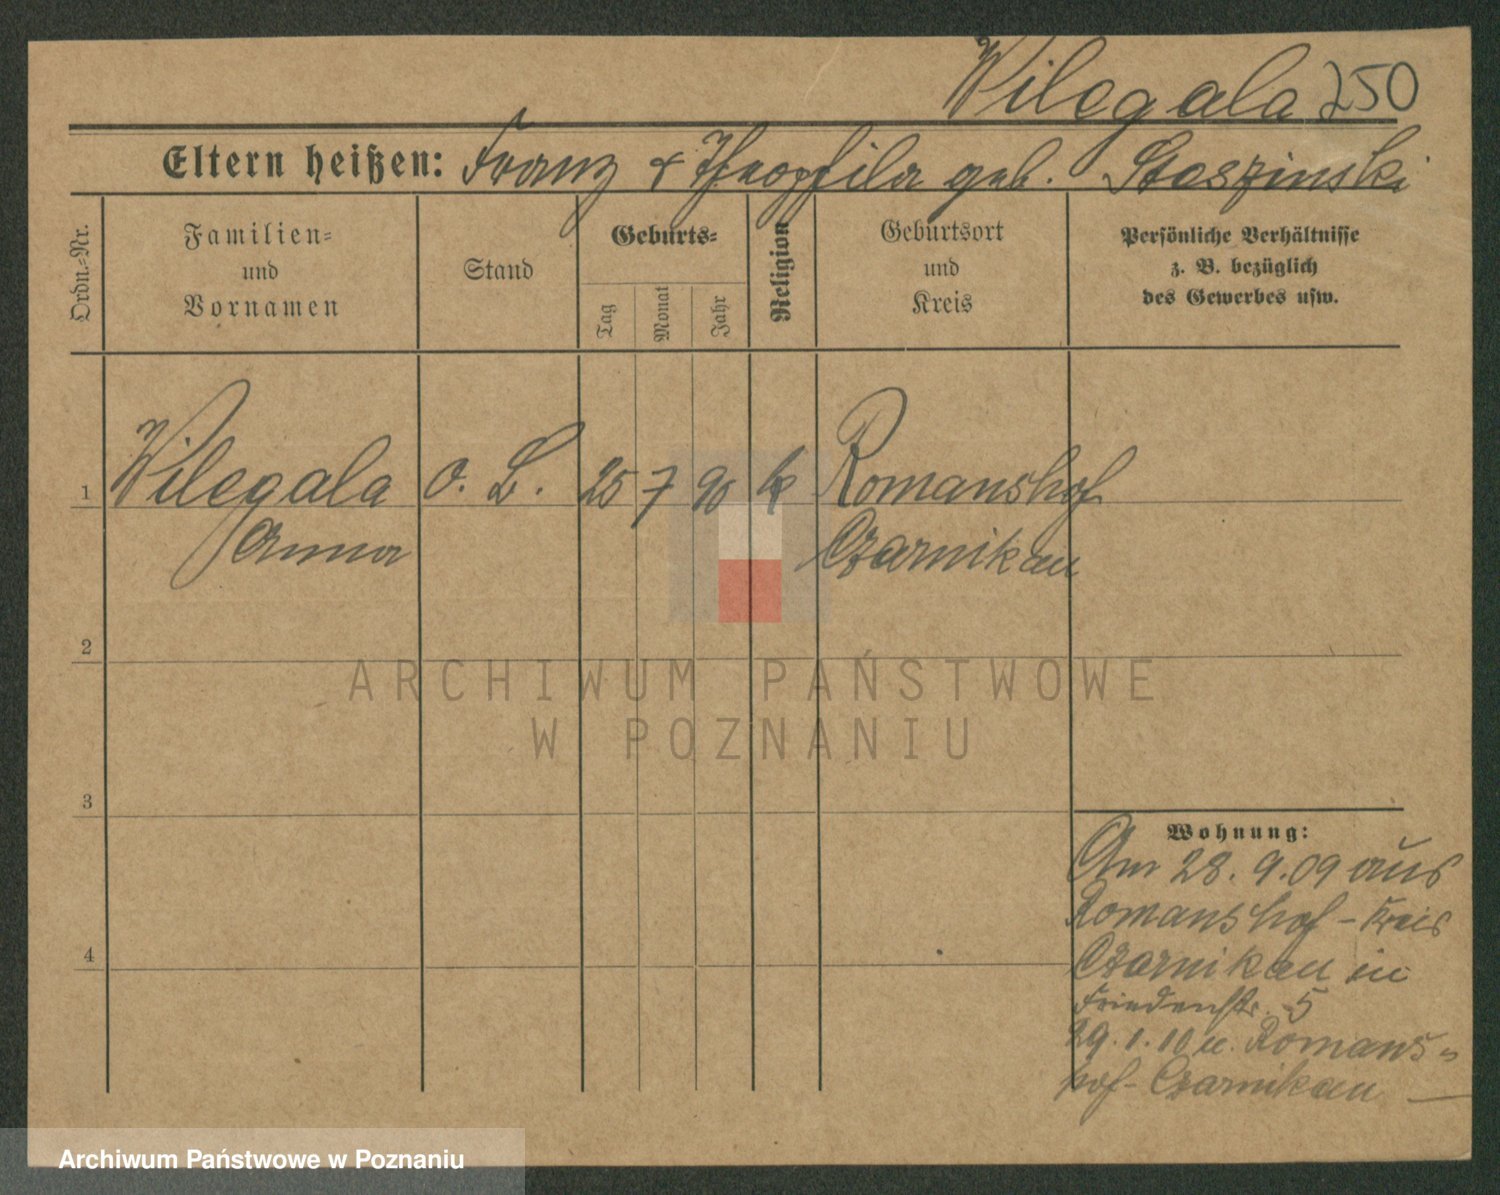 Wilegala 250
Eltern heißen: Franz & Theophila geb. Stoszinski
Ordn.-Nr.
Familien-
und
Vornamen
Stand
Geburts-
Tag
Monat
Jahr
Religion
Geburtsort
und
Kreis
Persönliche Verhältnisse
z. B. bezüglich
des Gewerbes usw.
1 Wilegala o. B. 25 7 90 k Romanshof
Anna Czarnikau
2
3
4
Wohnung:
Am 28. 9. 09 aus
Romanshof - Kreis
Czarnikau in
Friedenstr. 5
29. 1. 10 n. Romans-
hof - Czarnikau
ARCHIWUM PAŃSTWOWE
W POZNANIU
Archiwum Państwowe w Poznaniu